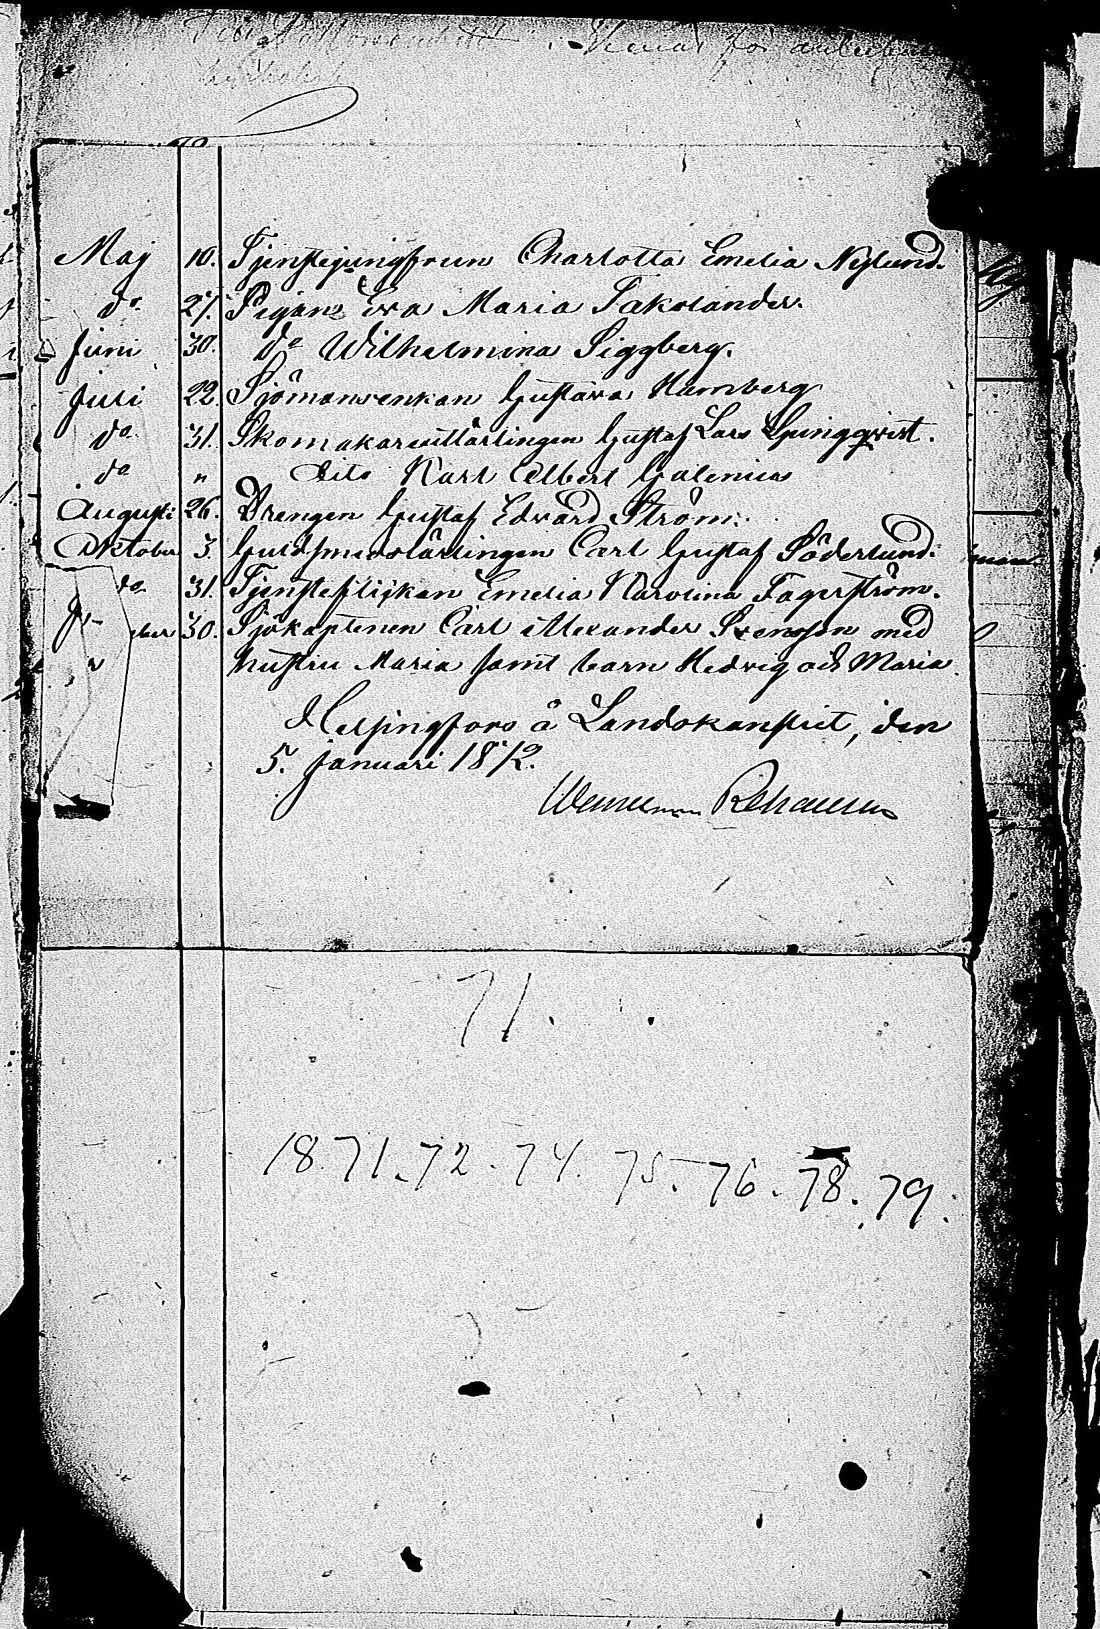 Maj 10. Tjenstejungfrun Charlotta Emelia Nylund.
do 27. Pigan Eva Maria Takolander.
Juni 30. do Wilhelmina Siggberg.
Juli 22. Sjömansenkan Gustava Hamberg
do 31. Skomakarelärlingen Gustaf Lars Ljungqvist.
do " dito Karl Albert Galenius
Augusti 26. Drengen Gustaf Edvard Ström.
Oktober 3. Guldsmedslärlingen Carl Gustaf Söderlund.
do 31. Tjensteflickan Emelia Karolina Fagerström.
ber 30. Sjökaptenen Carl Alexander Svensson med
" hustru Maria samt barn Hedvig och Maria.
Helsingfors å Landskansliet, den
5. Januari 1872.
71.
1871. 72. 74. 75. 76. 78. 79.